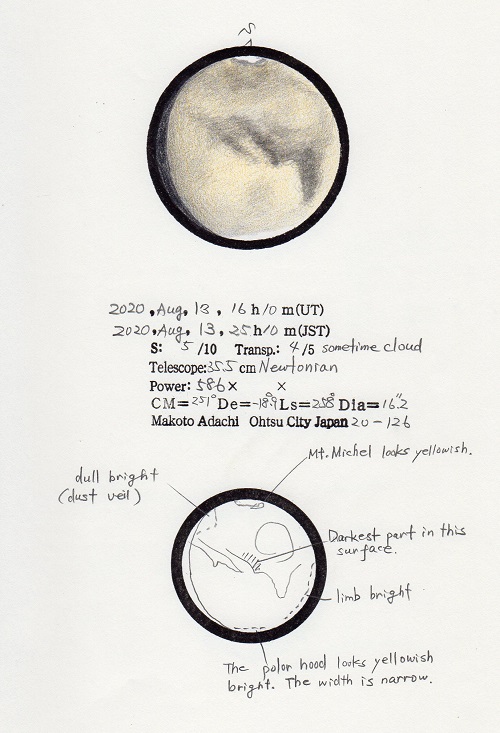 S
2020, Aug, 13, 16 h 10 m (UT)
2020, Aug, 13, 25 h 10 m (JST)
S: 5 /10 Transp.: 4 /5 sometime cloud
Telescope: 35.5 cm Newtonian
Power: 586 × ×
CM= 251° De= -18.°9 Ls= 258° Dia= 16."2
Makoto Adachi Ohtsu City Japan 20 - 126
Mt. Michel looks yellowish.
dull bright
(dust veil)
Darkest part in this
surface.
limb bright
The polar hood looks yellowish
bright. The width is narrow.